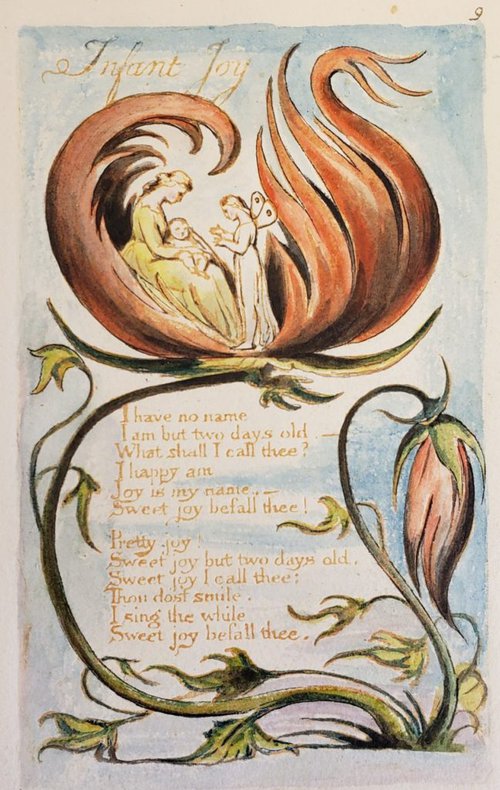 9
Infant Joy
I have no name
I am but two days old —
What shall I call thee?
I happy am
Joy is my name, —
Sweet joy befall thee!
Pretty joy!
Sweet joy but two days old.
Sweet joy I call thee;
Thou dost smile.
I sing the while
Sweet joy befall thee.